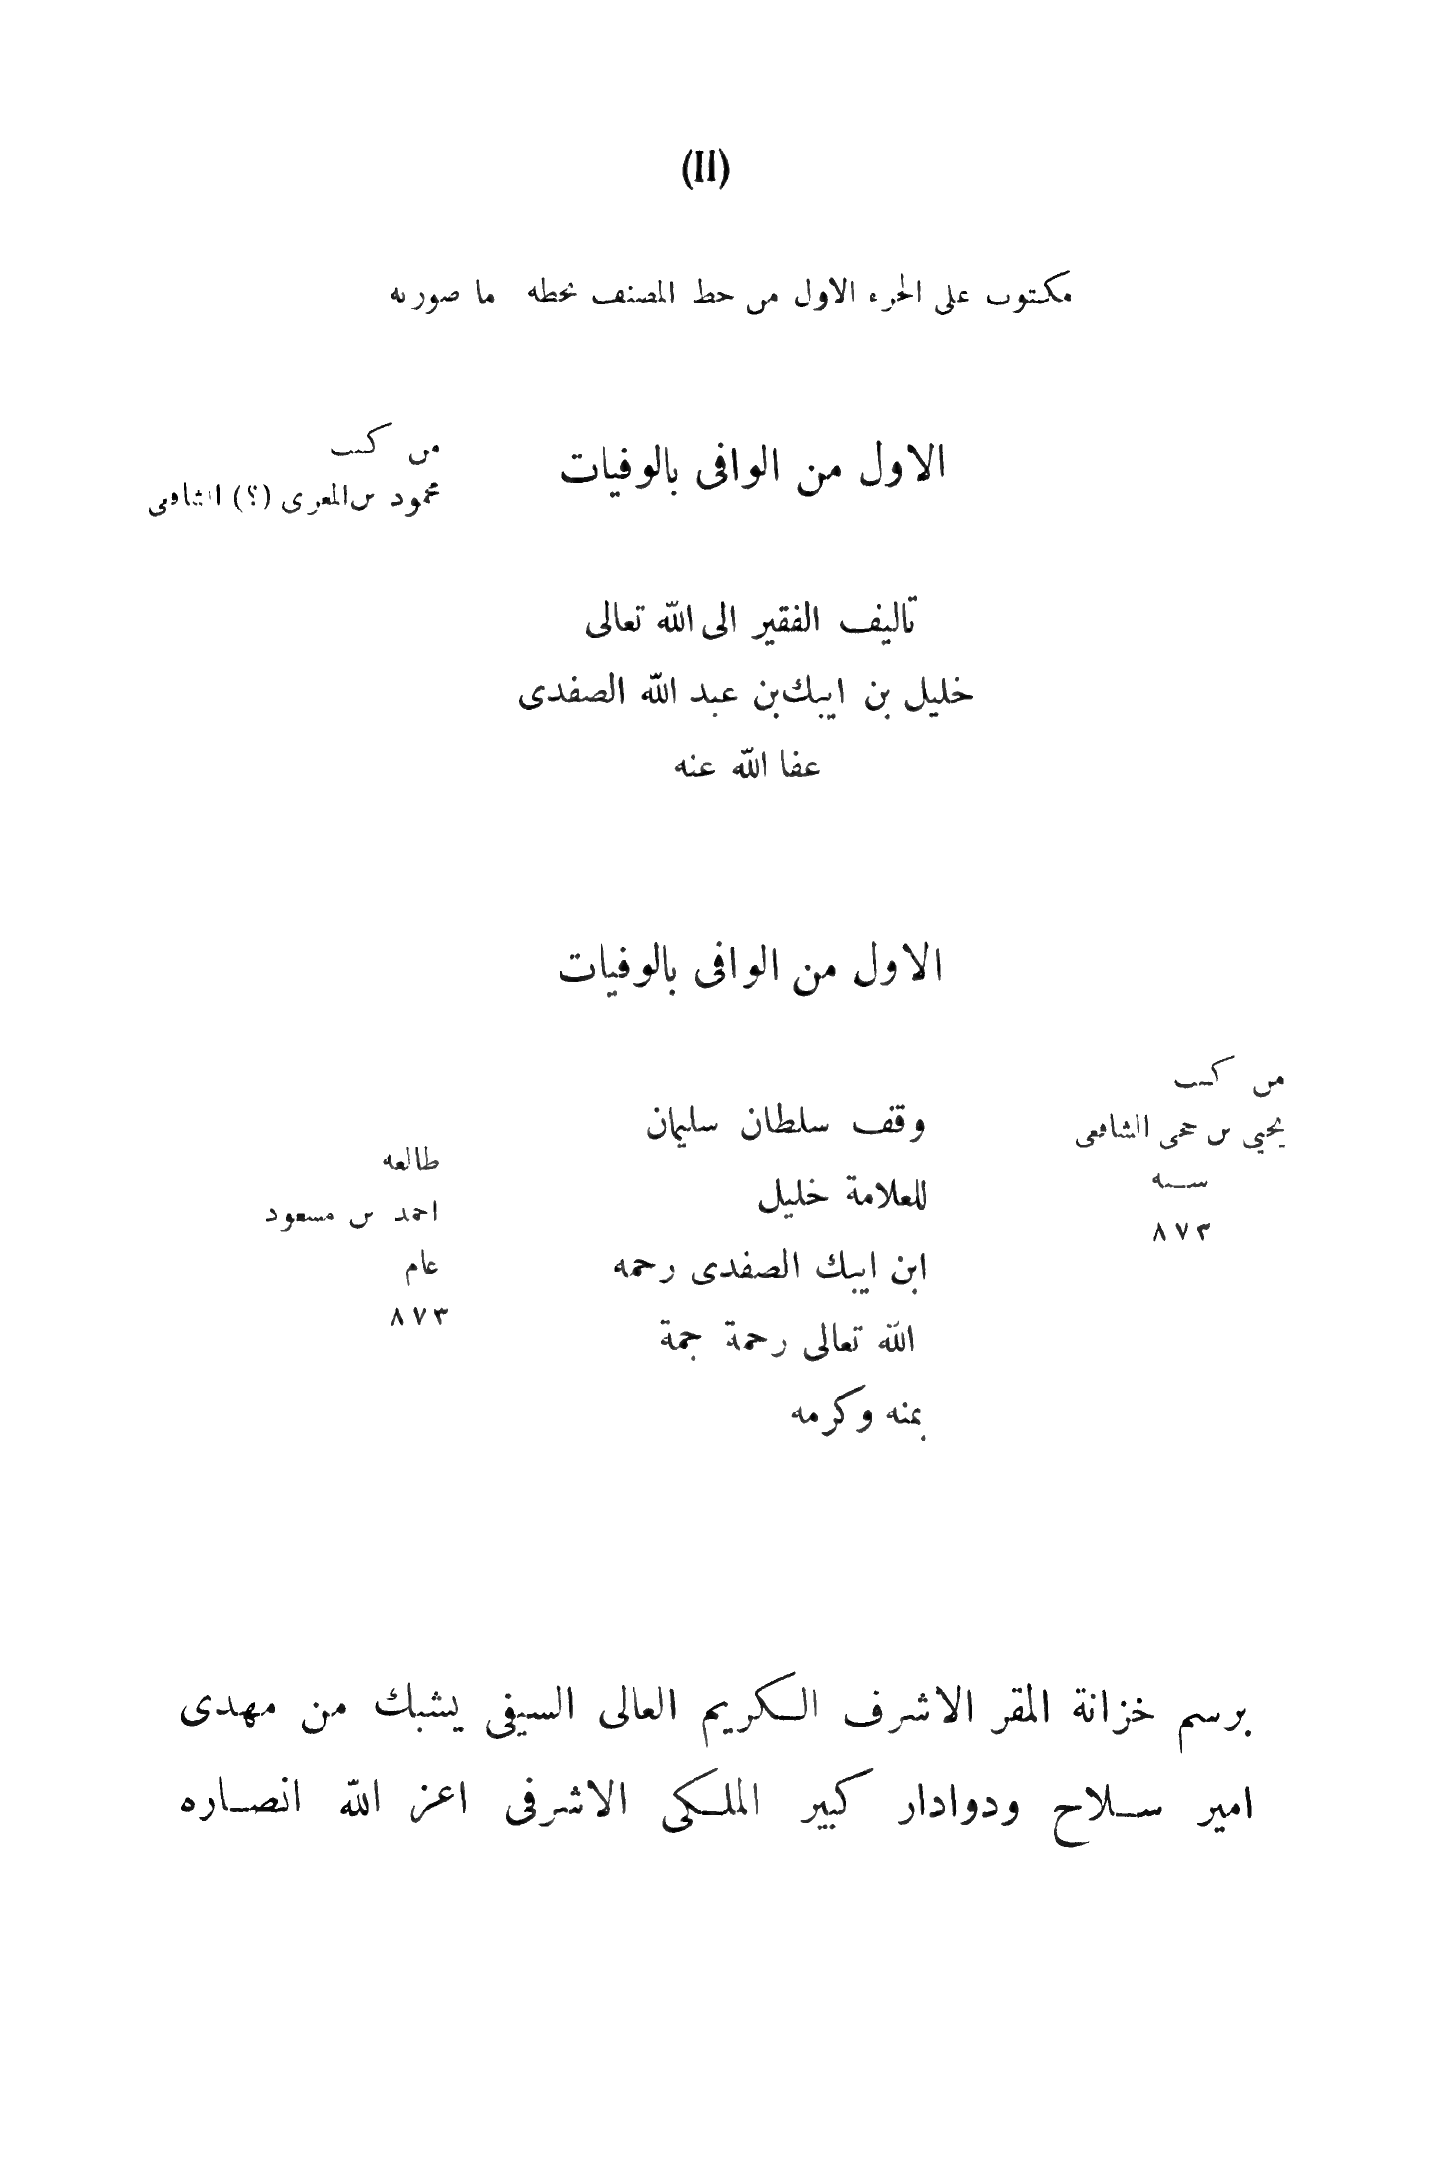 (II)
مكتوب على الحرء الاول من حط المصنف بخطه ما صورته
الاول من الوافى بالوفيات
من كتب
محمود بن المعرى (؟) الشافعى
تاليف الفقير الى الله تعالى
خليل بن ايبك بن عبد الله الصفدى
عفا الله عنه
الاول من الوافى بالوفيات
من كتب
يحيى بن حجى الشافعى
سنه
٨٧٣
وقف سلطان سليمان
للعلامة خليل
ابن ايبك الصفدى رحمه
الله تعالى رحمة جمة
بمنه وكرمه
طالعه
احمد بن مسعود
عام
٨٧٣
برسم خزانة المقر الاشرف الكريم العالى السيفى يشبك من مهدى
امير سلاح ودوادار كبير الملكى الاشرفى اعز الله انصاره